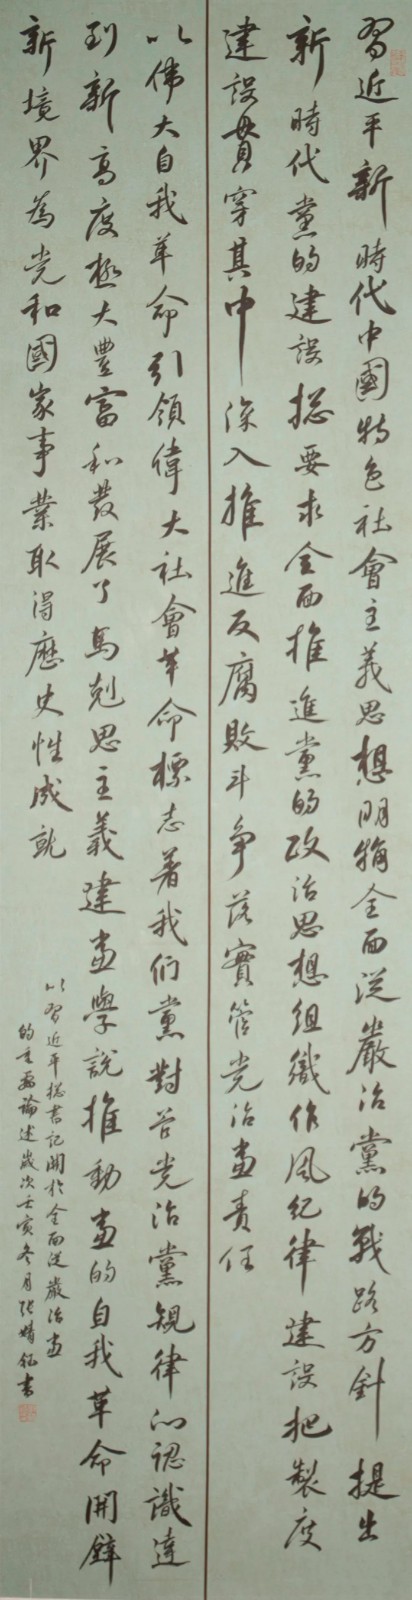 習近平新時代中國特色社會主義思想明確全面從嚴治黨的戰略方針提出
新時代黨的建設總要求全面推進黨的政治思想組織作風紀律建設把製度
建設貫穿其中深入推進反腐敗斗争落實管党治党責任
以偉大自我革命引領偉大社會革命標志著我们黨對管党治黨規律的認識達
到新高度極大豐富和發展了馬剋思主義建党學說推動党的自我革命開辟
新境界為党和國家事業取得歷史性成就
以習近平總書記關於全面從嚴治党
的重要論述歲次壬寅冬月張婧鈺書